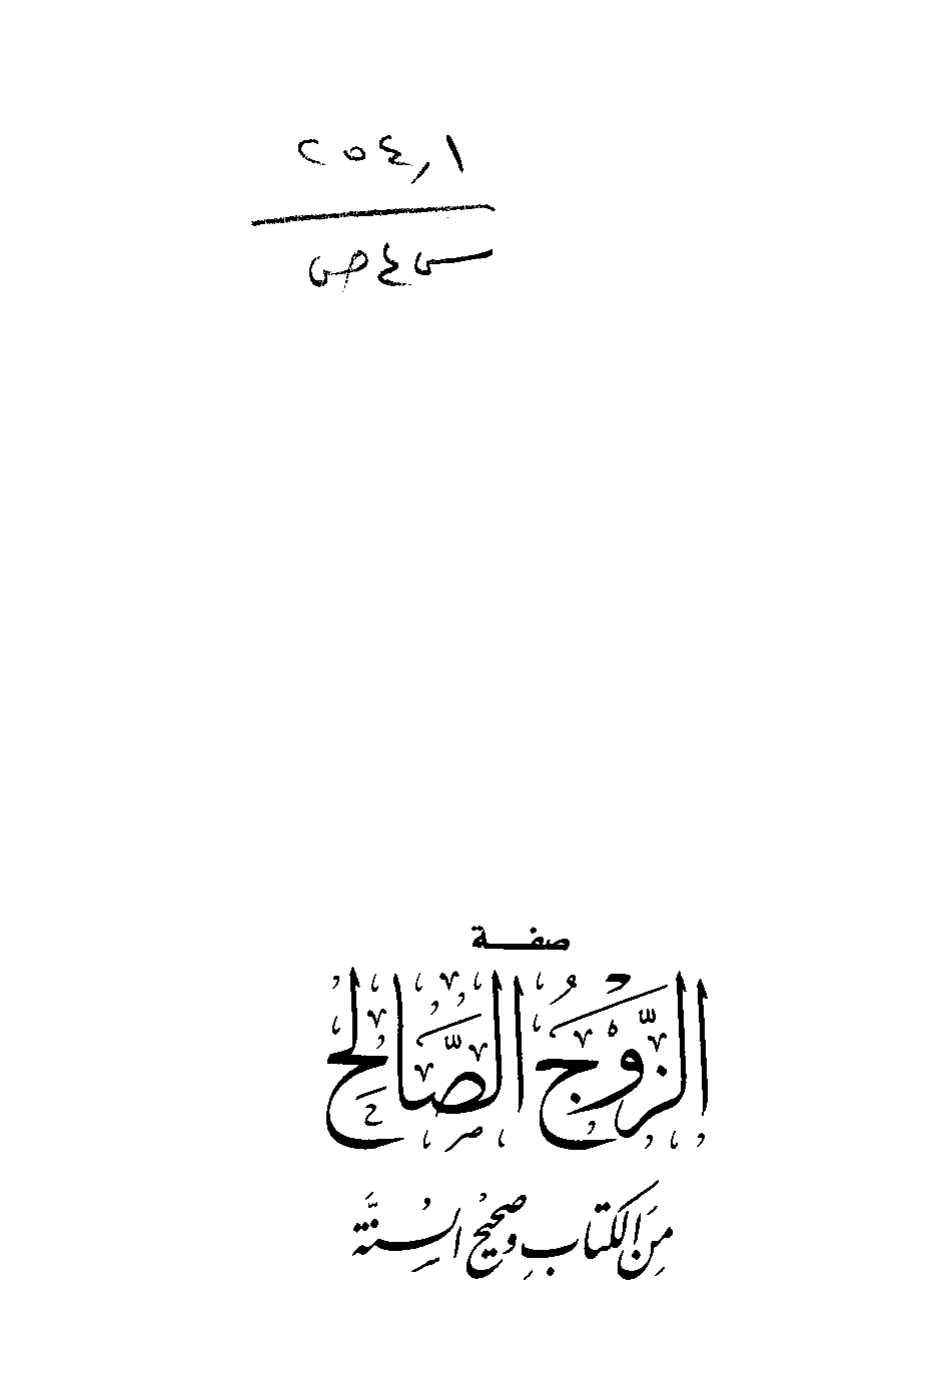 ٢٥٤,١
س ع ص
صفة
الزَّوْجُ الصَّالِحُ
مِنَ الكتابِ وصحيحُ السُنَّة